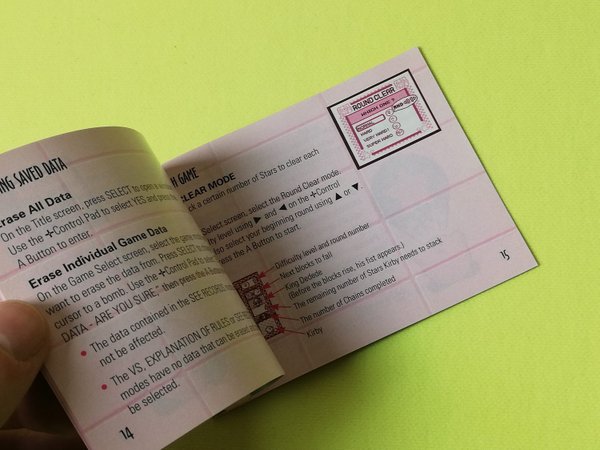 NG SAVED DATA
Erase All Data
On the Title screen, press SELECT to open a
Use the ✚Control Pad to select YES and press the
A Button to enter.
Erase Individual Game Data
On the Game Select screen, select the game
want to erase the data from. Press SELECT
cursor to a bomb. Use the ✚Control Pad to select
DATA - ARE YOU SURE," then press the A
• The data contained in the SEE RECORDS
not be affected.
• The VS, EXPLANATION OF RULES or SEE
modes have no data that can be erased
be selected.
14
H GAME
CLEAR MODE
ck a certain number of Stars to clear each
Select screen, select the Round Clear mode.
ty level using ▶ and ◀ on the ✚Control
so select your beginning round using ▲ or ▼.
ess the A Button to start.
ROUND CLEAR
WHICH ONE ?
NORMAL
HARD
VERY HARD!
SUPER HARD
Difficulty level and round number
Next blocks to fall
King Dedede
(Before the blocks rise, his fist appears.)
The remaining number of Stars Kirby needs to stack
The number of Chains completed
Kirby
15